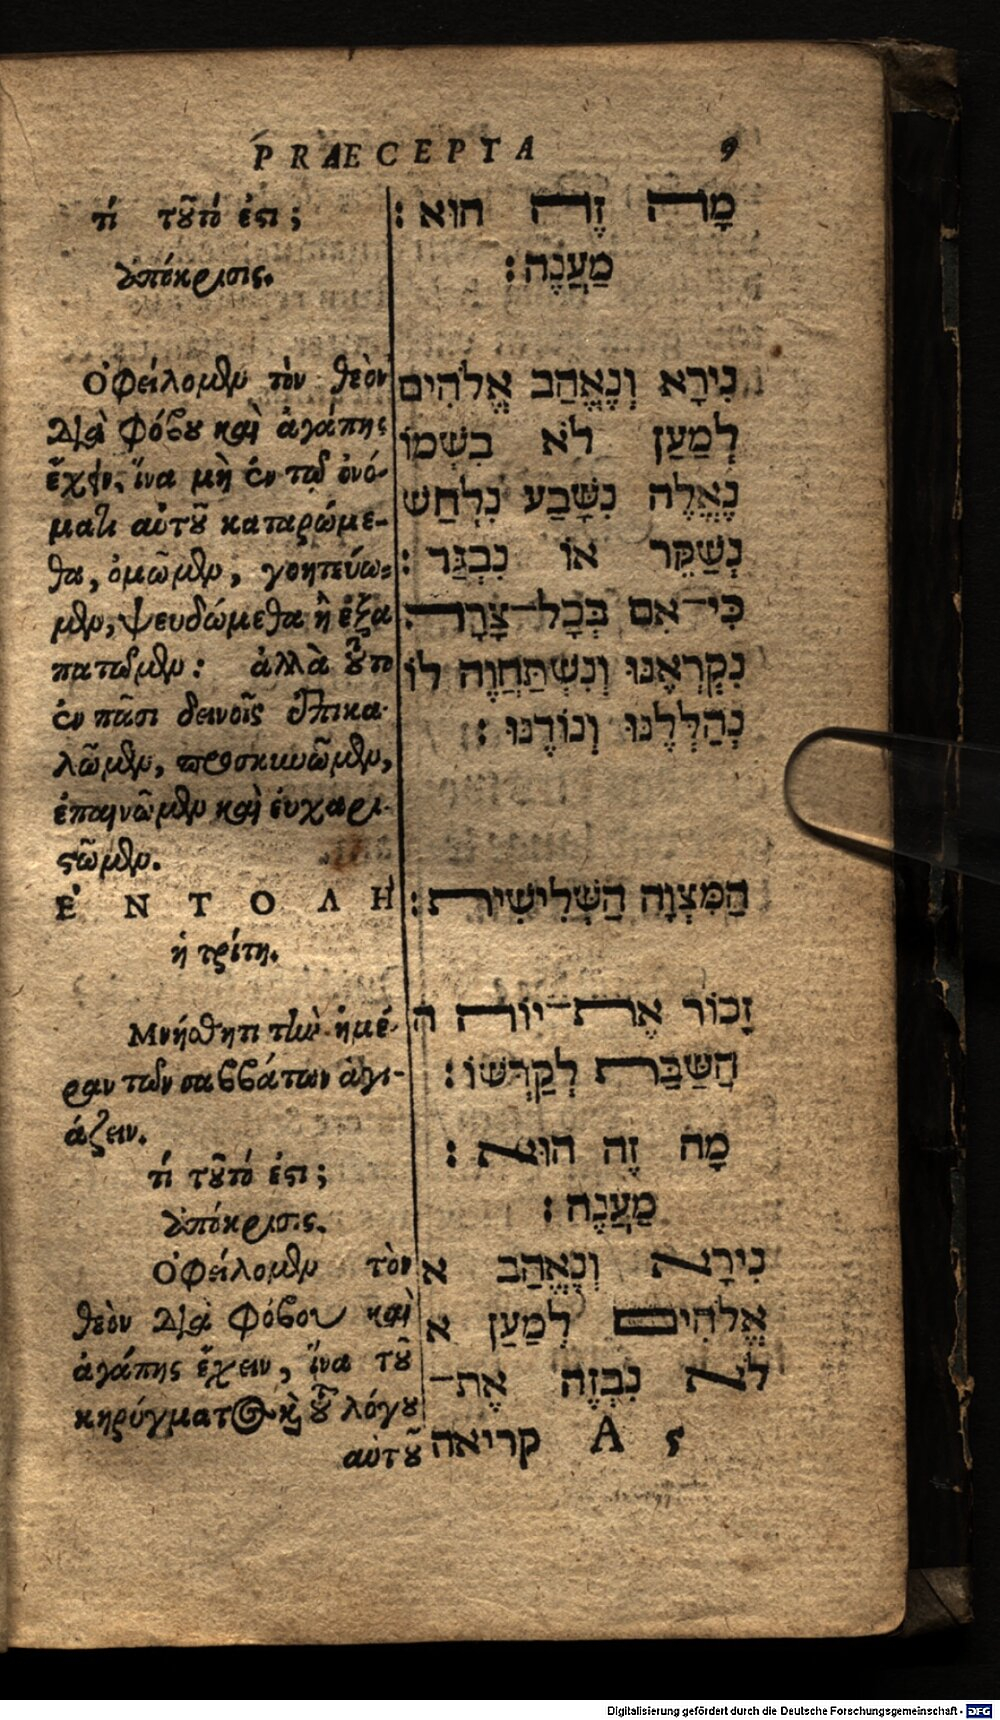 PRAECEPTA 9
τί τοῦτό ἐστι;
ὑπόκρισις.
Ὀφείλομεν τὸν θεὸν
διὰ φόβου καὶ ἀγάπης
ἔχειν, ἵνα μὴ ἐν τῷ ὀνό-
ματι αὐτοῦ καταρώμε-
θα, ὀμῶμεν, γοητεύω-
μεν, ψευδώμεθα ἢ ἐξα
πατῶμεν: ἀλλὰ τοῦτο
ἐν πᾶσι δεινοῖς ἐπικα-
λῶμεν, προσκυνῶμεν,
ἐπαινῶμεν καὶ εὐχαρι-
στῶμεν.
ἘΝΤΟΛΉ
ἡ τρίτη.
Μνήσθητι τὴν ἡμέ-
ραν τῶν σαββάτων ἁγι-
άζειν.
τί τοῦτό ἐστι;
ὑπόκρισις.
Ὀφείλομεν τὸν
θεὸν διὰ φόβου καὶ
ἀγάπης ἔχειν, ἵνα τοῦ
κηρύγματος καὶ τοῦ λόγου
αὐτοῦ
מָה זֶה הוא:
מַעֲנֶה:
נִירָא וְנֶאֱהַב אֱלֹהִים
לְמַעַן לֹא בִשְׁמוֹ
נֶאֱלֶה נִשָּׁבַע נִלְחַשׁ
נְשַׁקֵּר אוֹ נִבְגַּד:
כִּי־אִם בְּכָל־צָרָה
נִקְרְאֶנּוּ וְנִשְׁתַּחֲוֶה לוֹ
נְהַלְלֶנּוּ וְנוֹדֶנּוּ:
הַמִּצְוָה הַשְּׁלִישִׁית:
זָכוֹר אֶת־יוֹם ה
הַשַּׁבָּת לְקַדְּשׁוֹ:
מָה זֶה הוּא:
מַעֲנֶה:
נִירָא וְנֶאֱהַב א
אֱלֹהִים לְמַעַן א
לא נִבְזֶה אֶת־
קריאה A 5
Digitalisierung gefördert durch die Deutsche Forschungsgemeinschaft - DFG